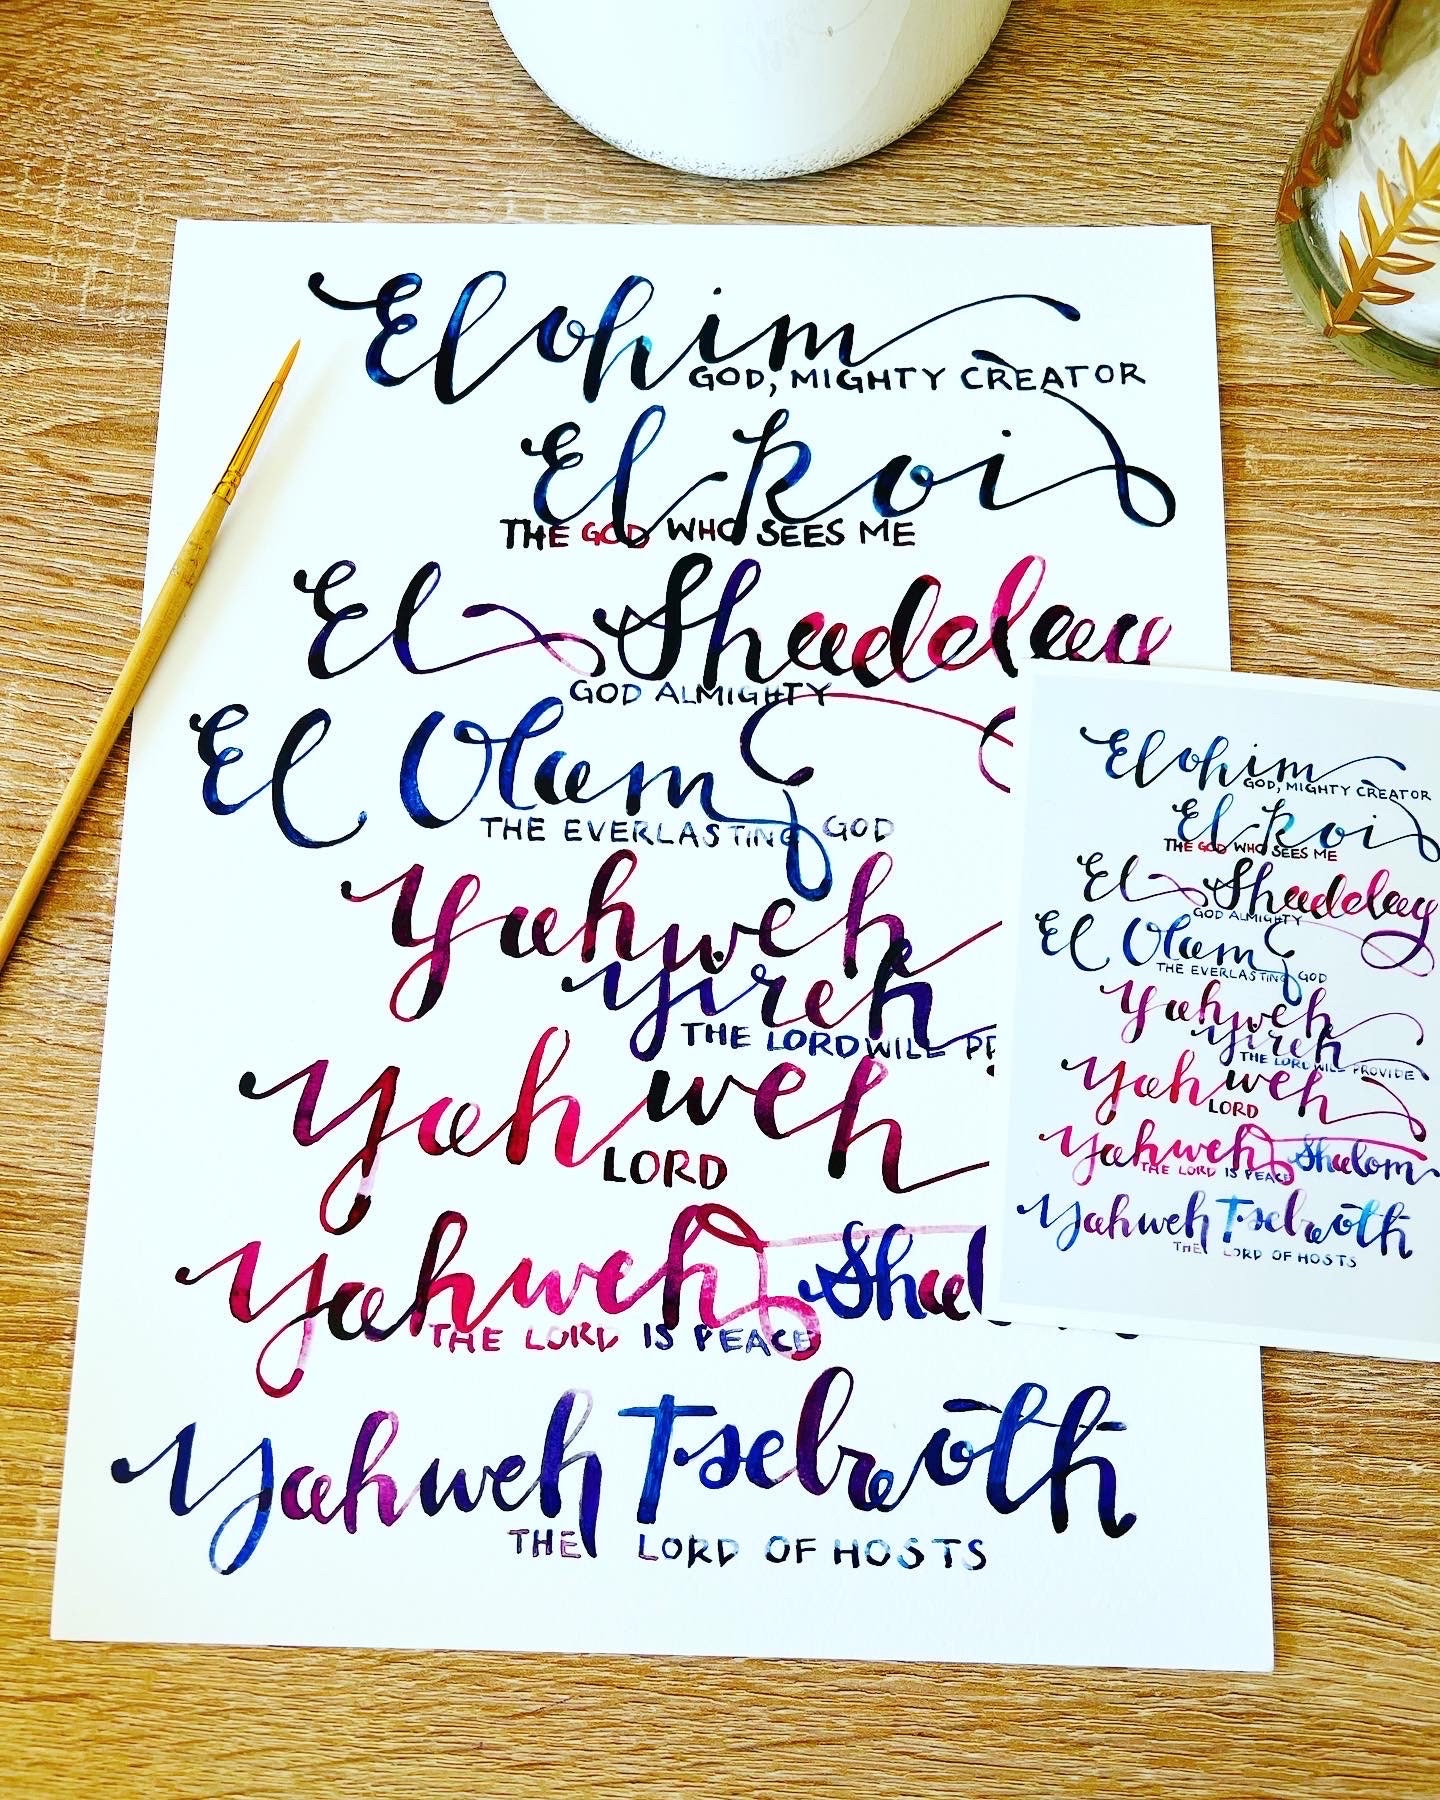 Elohim
GOD, MIGHTY CREATOR
El Roi
THE GOD WHO SEES ME
El Shadday
GOD ALMIGHTY
El Olam
THE EVERLASTING GOD
Yahweh
Yireh
THE LORD WILL PR
Yahweh
LORD
Yahweh Shal
THE LORD IS PEACE
Yahweh Tsebaoth
THE LORD OF HOSTS
Elohim
GOD, MIGHTY CREATOR
El Roi
THE GOD WHO SEES ME
El Shadday
GOD ALMIGHTY
El Olam
THE EVERLASTING GOD
Yahweh
Yireh
THE LORD WILL PROVIDE
Yahweh
LORD
Yahweh Shalom
THE LORD IS PEACE
Yahweh Tsebaoth
THE LORD OF HOSTS